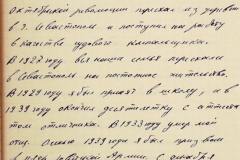 Октябрьской революции переехал из деревни
в г. Севастополь и поступил на работу
в качестве судового котельщика.
В 1927 году вся наша семья переехала
в Севастополь на постоянное жительство.
В 1929 году я был принят в школу, а в
1939 году окончил десятилетку с аттеста
том отличника. В 1933 году умер мой
отец. Осенью 1939 года я был призван
в ряды Армии. С декабря